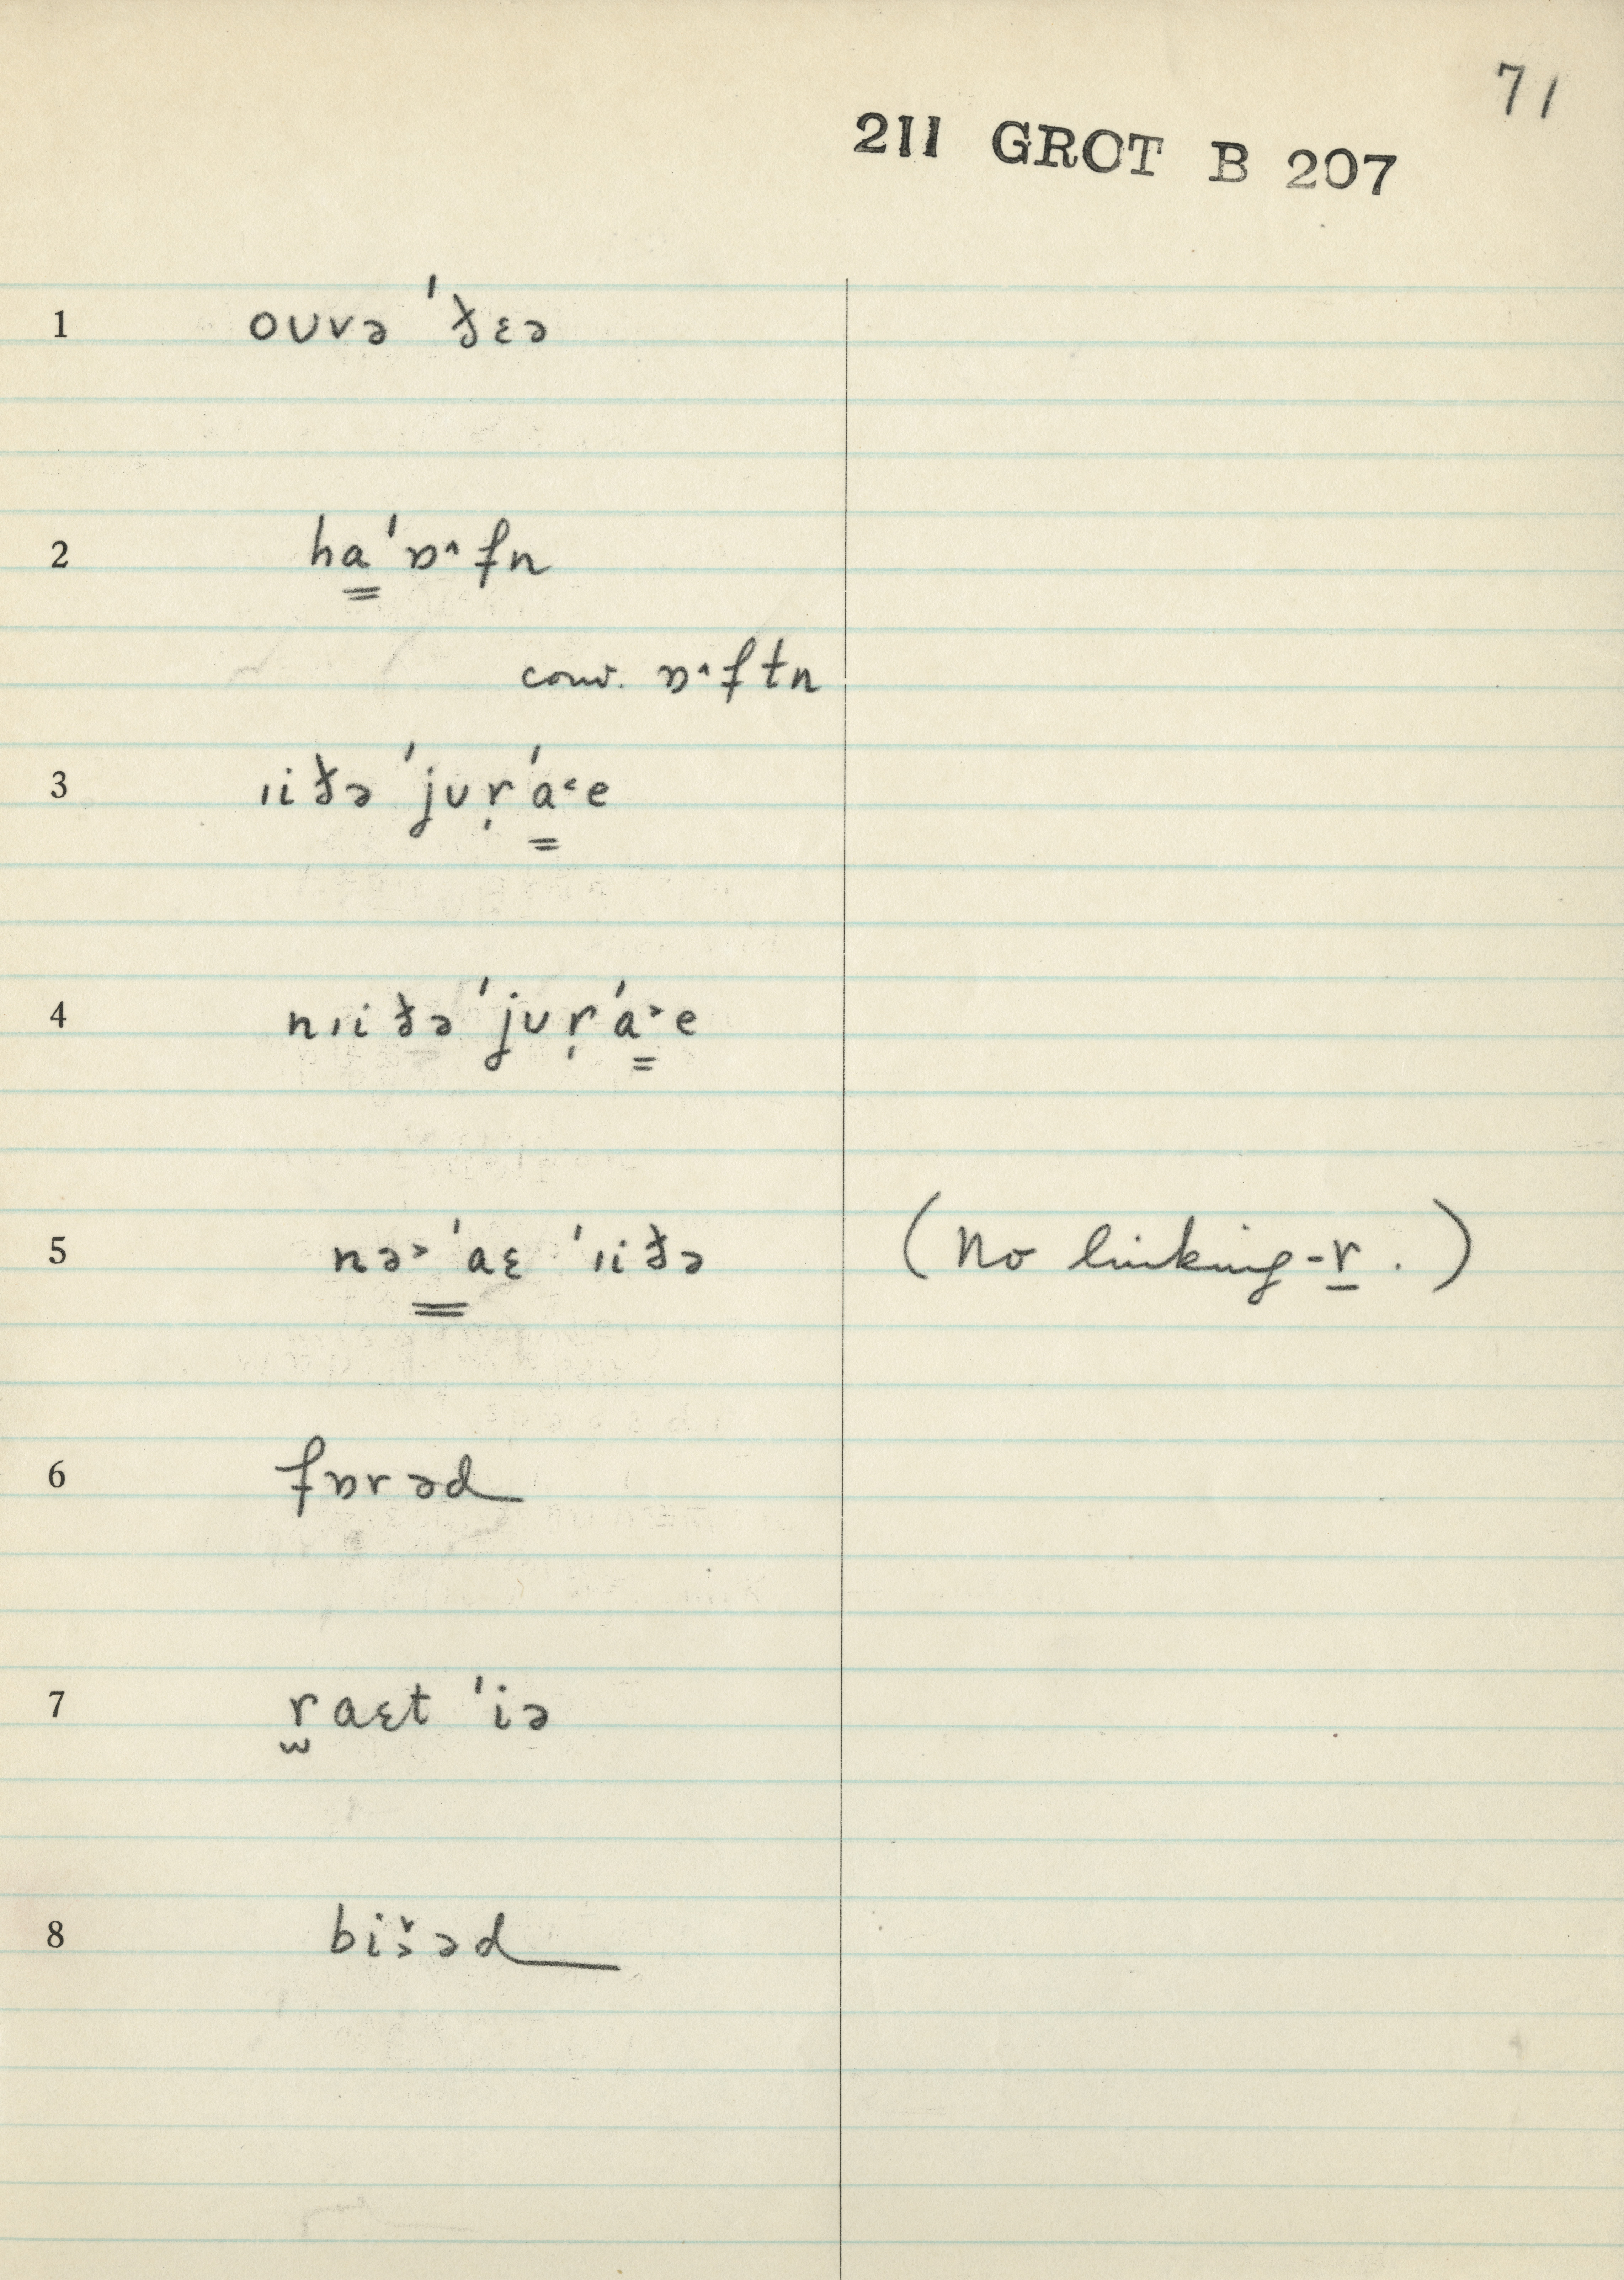 71
211 GROT B 207
1 oʊvə ˈðɛə
2 ha̳ˈɒ˄fn
conv. ɒ˄ftn
3 ɪiðə ˈjʊṛˈa̳˂e
4 nɪiðə ˈjʊṛˈa̳˃e
5 nə˃ ˈa̳ɛ ˈɪiðə (No linking-r̲.)
6 fɒrəd
7 r̫aɛt ˈiə
8 biɜ̌əd